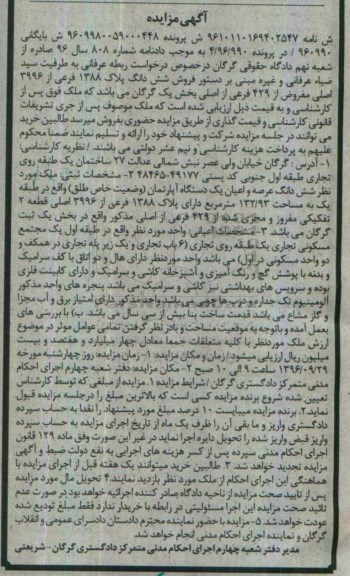 آگهی مزایده
ش نامه ۹۶۱۰۱۱۰۱۶۹۴۰۲۵۴۷ ش پرونده ۹۶۰۹۹۸۰۰۵۹۰۰۰۴۴۸ ش بایگانی
۹۶۰۹۹۰ / در پرونده ۴/۹۶/۹۹۰ به موجب دادنامه شماره ۸۰۸ سال ۹۶ صادره از
شعبه نهم دادگاه حقوقی گرگان درخصوص درخواست ربطه عرفانی به طرفیت سید
ضیاء عرفانی و غیره مبنی بر دستور فروش شش دانگ پلاک ۱۳۸۸ فرعی از ۳۹۹۶
اصلی مفروض از ۴۲۹ فرعی از اصلی بخش یک گرگان می باشد که ملک فوق پس از
کارشناسی و به قیمت ذیل ارزیابی شده است که ملک موصوف پس از جری تشریفات
قانونی کارشناسی و قیمت گذاری از طریق مزایده حضوری بفروش میرسد طالبین خرید
می توانند در جلسه مزایده شرکت و پیشنهاد خود را ارائه و تسلیم نمایند ضمنا محکوم
علیهم به پرداخت هزینه کارشناسی و نیم عشر دولتی می باشند. / نظریه کارشناسی:
۱- آدرس : گرگان خیابان ولی عصر نبش شمالی عدالت ۲۷ ساختمان یک طبقه روی
تجاری طبقه اول جنوبی کد پستی ۴۹۱۷۷-۴۸۴۶۵ ۲- مشخصات ثبتی ملک مورد
نظر شش دانگ عرصه و اعیان یک دستگاه آپارتمان (وضعیت خاص طلق) واقع در طبقه
یک به مساحت ۱۳۲/۹۳ مترمربع دارای پلاک ۱۳۸۸ فرعی از ۳۹۹۶ اصلی قطعه ۲
تفکیکی مفروز و مجزی شده از ۴۲۹ فرعی از اصلی مذکور واقع در بخش یک ثبت
گرگان می باشد ۳- مشخصات اعیانی: واحد مورد نظر واقع در طبقه اول یک مجتمع
مسکونی تجاری یک طبقه روی تجاری (۶ باب تجاری و یک زیر پله تجاری در همکف و
دو واحد مسکونی در اول) می باشد واحد موردنظر دارای هال و دو اتاق با کف سرامیک
و بدنه با پوشش گچ و رنگ آمیزی و آشپزخانه کاشی و سرامیک و دارای کابینت فلزی
بوده و سرویس های بهداشتی نیز کاشی و سرامیک می باشد پنجره های واحد مذکور
آلومینیوم تک جداره و درب ها چوبی می باشد واحد مذکور دارای امتیاز برق و آب مجزا
و گاز مشاع می باشد قدمت ساخت بنا بیش از سی سال می باشد. ب) با بررسی های
بعمل آمده و باتوجه به موقعیت مساحت و بادر نظر گرفتن تمامی عوامل موثر در موضوع
ارزش ملک موردنظر با کلیه متعلقات جمعا معادل چهار میلیارد و هفتصد و بیست
میلیون ریال ارزیابی میشود/ زمان و مکان مزایده: ۱- زمان مزایده: روز چهارشنبه مورخه
۱۳۹۶/۰۹/۲۹ ساعت ۹ الی ۱۰ صبح ۲- مکان مزایده: دفتر شعبه چهارم اجرای احکام
مدنی متمرکز دادگستری گرگان / شرایط مزایده ۱. مزایده از مبلغی که توسط کارشناس
تعیین شده شروع برنده مزایده کسی است که بالاترین مبلغ را درجلسه مزایده قبول
نماید ۲. برنده مزایده میبایست ۱۰ درصد مبلغ مورد پیشنهاد را نقدا به حساب سپرده
دادگستری واریز و ما بقی آن را ظرف یک ماه از تاریخ اجرای مزایده به حساب سپرده
واریز قبض واریز شده را تحویل دایره اجرا نماید در غیر این صورت وفق ماده ۱۲۹ قانون
اجرای احکام مدنی سپرده پس از کسر هزینه های اجرایی به نفع دولت ضبط و آگهی
مزایده تجدید خواهد شد. ۳ طالبین خرید میتوانند یک هفته قبل از اجرای مزایده با
هماهنگی این اجرای احکام از ملک مورد نظر بازدید نمایند. ۴ تحویل مال مورد مزایده
پس از تایید صحت مزایده از ناحیه دادگاه صادر کننده اجرائیه خواهد بود در صورت عدم
تائید صحت مزایده این اجرا مسئولیتی در رابطه با خریدار ندارد فقط مبلغ تودیع شده
عودت خواهد شد. ۵- مزایده با حضور نماینده محترم دادستان دادسرای عمومی و انقلاب
گرگان و نماینده اجرای احکام مدنی انجام خواهد شد.
مدیر دفتر شعبه چهارم اجرای احکام مدنی متمرکز دادگستری گرگان - شریعتی